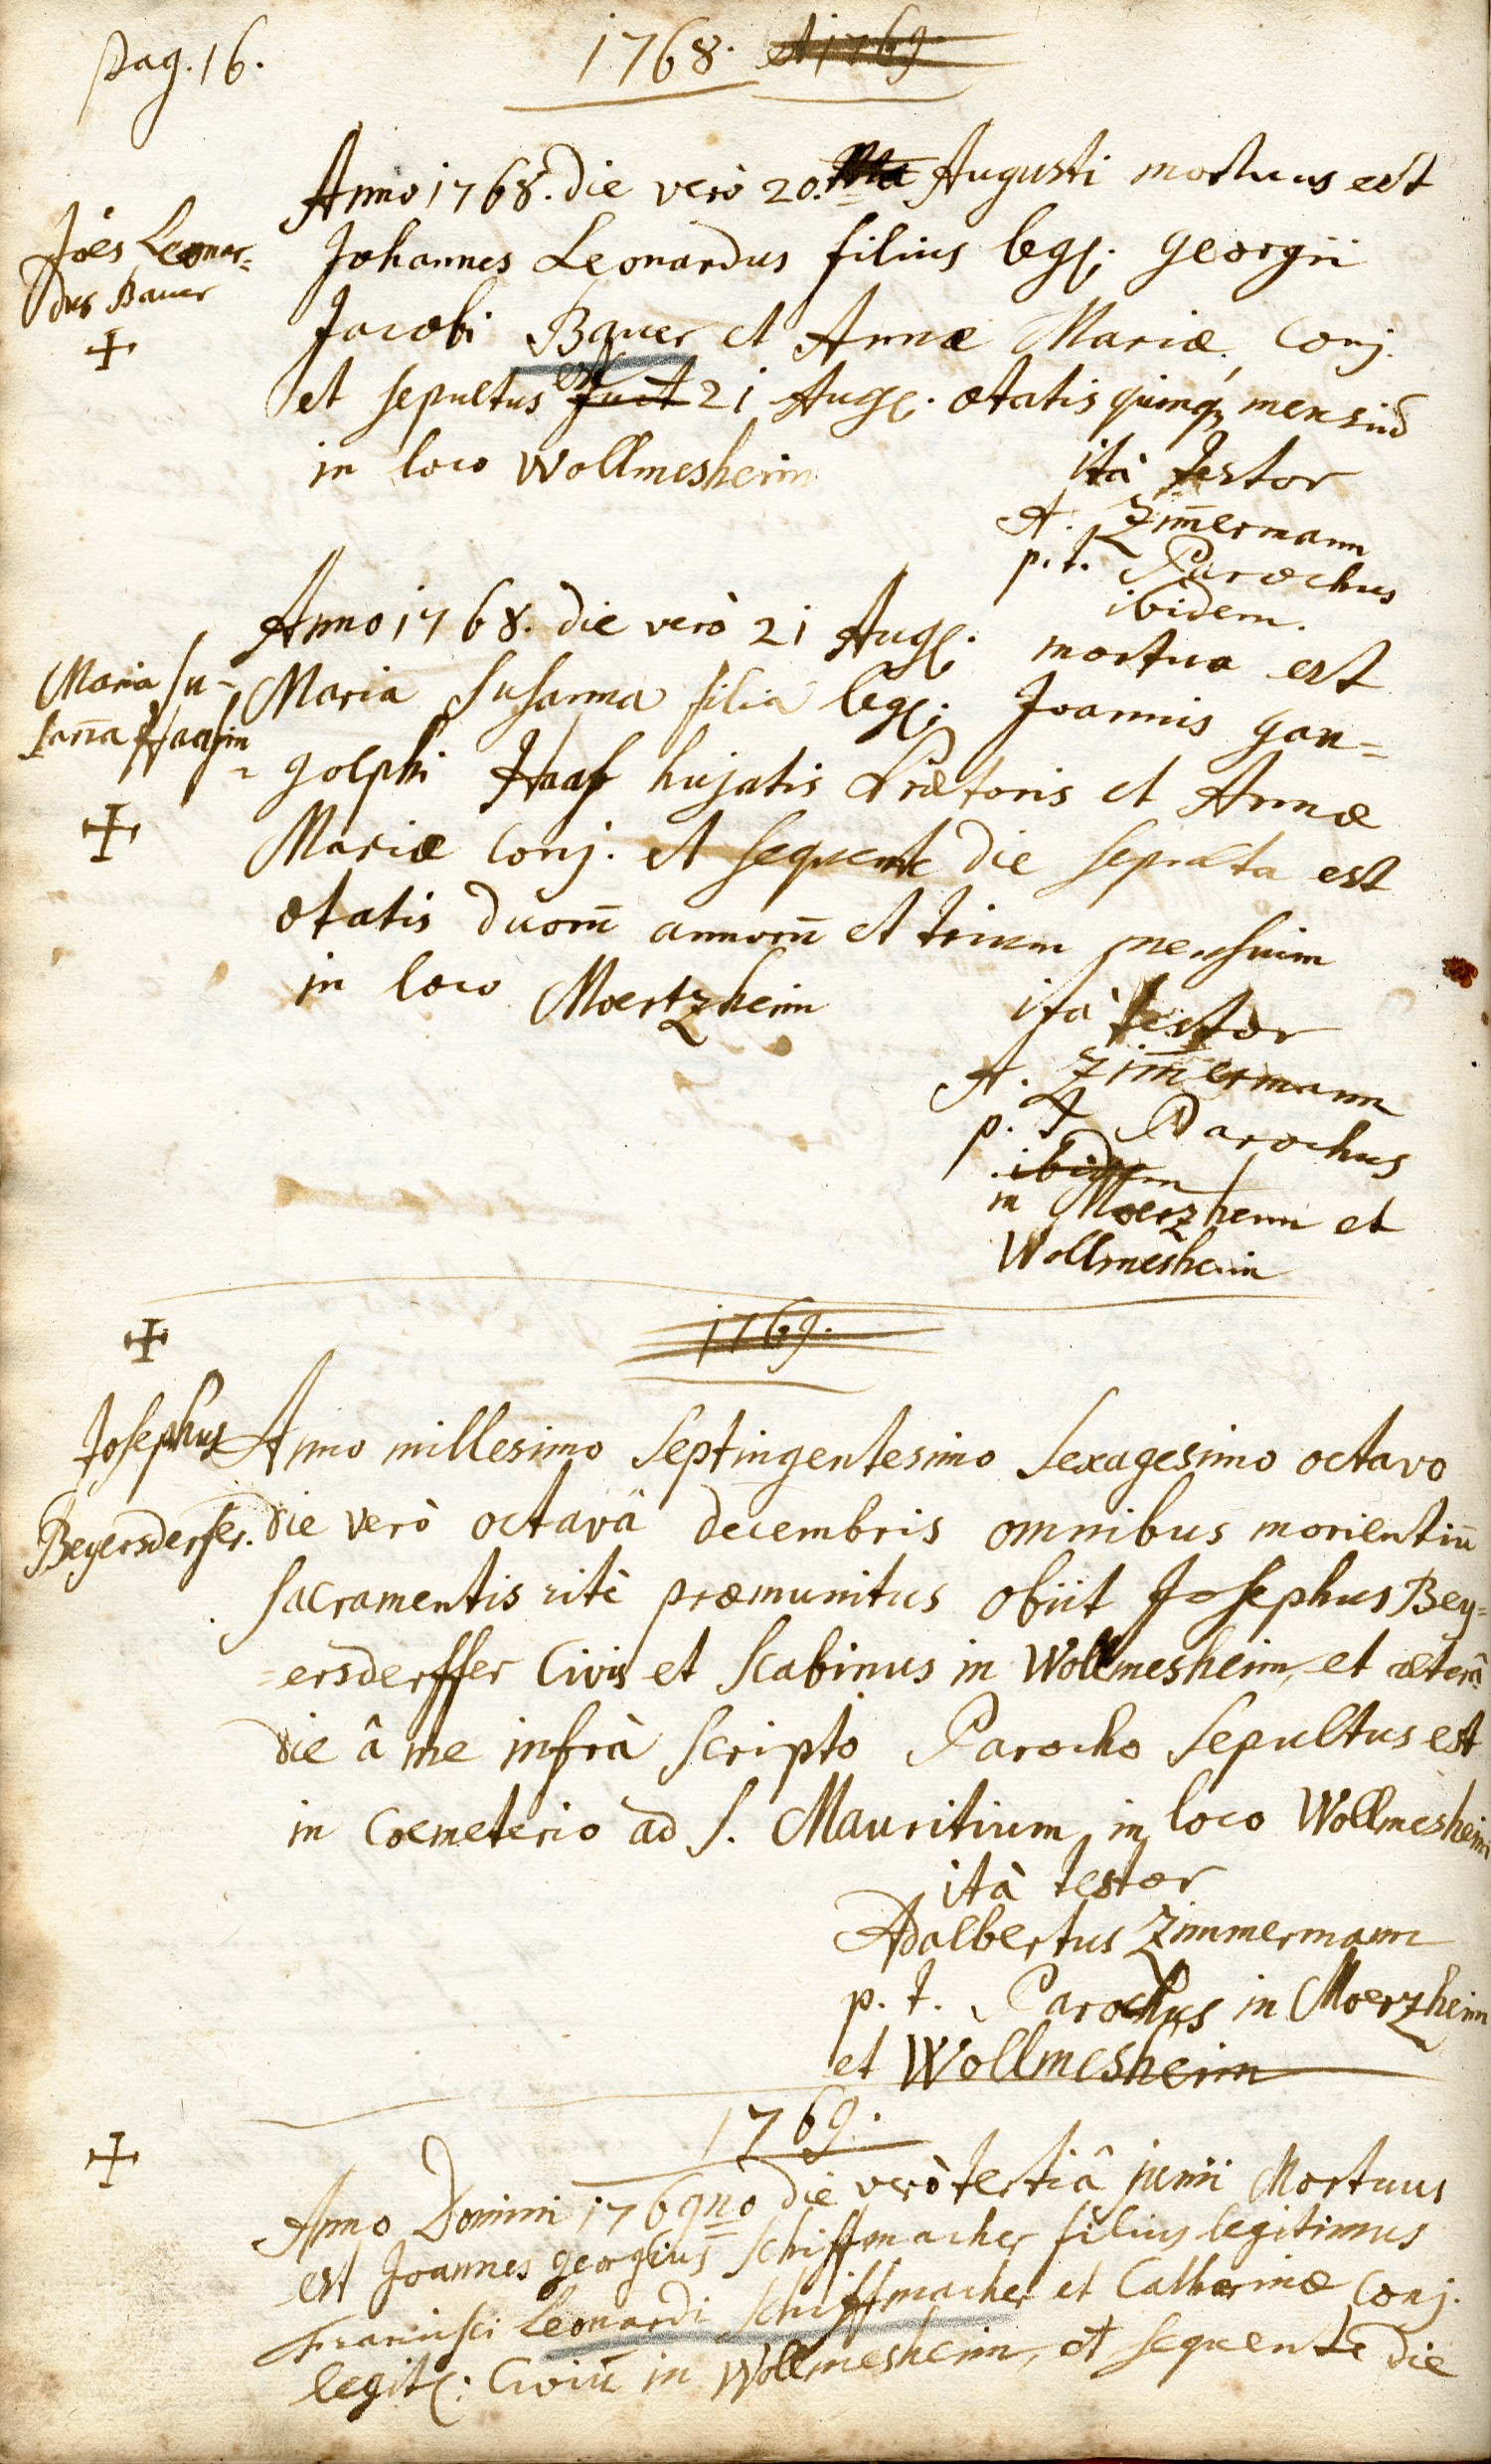 pag. 16.
1768. et 1769.
Anno 1768. die verò 20. Augusti mortuus est
Joes Leonar=
dus Bauer
Johannes Leonardus filius leg: Georgii
Jacobi Bauer et Annæ Mariæ Conj.
et sepultus est fuit 21 Aug: ætatis quinq; mensiū
in loco Wollmesheim
ità testor
A. Zim̄ermann
p. t. Parochus
ibidem.
Anno 1768. die verò 21 Aug: mortua est
Maria Su=
san̄a Haasin
Maria Susanna filia leg: Joannis Gan=
golphi Haas hujatis Prætoris et Annæ
Mariæ Conj. et sequente die sepulta est
ætatis duorū annorū et trium mensium
in loco Moertzheim
ità testor
A. Zim̄ermann
p. t. Parochus
ibidem
in Moerzheim et
Wollmesheim
1769.
Josephus
Beyersderfer.
Anno millesimo Septingentesimo Sexagesimo octavo
die verò octavâ decembris omnibus morientiū
sacramentis ritè præmunitus obiit Josephus Bey=
=ersderffer Civis et Scabinus in Wollmesheim, et alterâ
die â me infrà scripto Parocho Sepultus est
in Coemeterio ad S. Mauritium in loco Wollmesheim
ità testor
Adalbertus Zimmermann
p. t. Parochus in Moerzheim
et Wollmesheim
1769.
Anno Domini 1769no die verò tertiâ junii Mortuus
est Joannes Georgius Schiffmacher filius legitimus
Francisci Leonardi Schiffmacher et Catharinæ Conj.
legit: Civiū in Wollmesheim, et sequente die